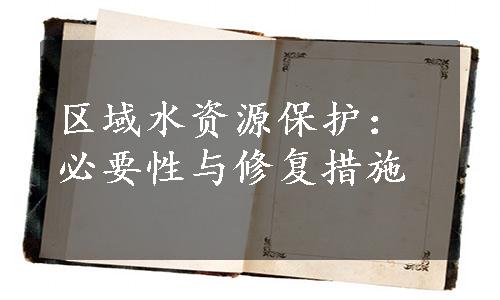 区域水资源保护：
必要性与修复措施